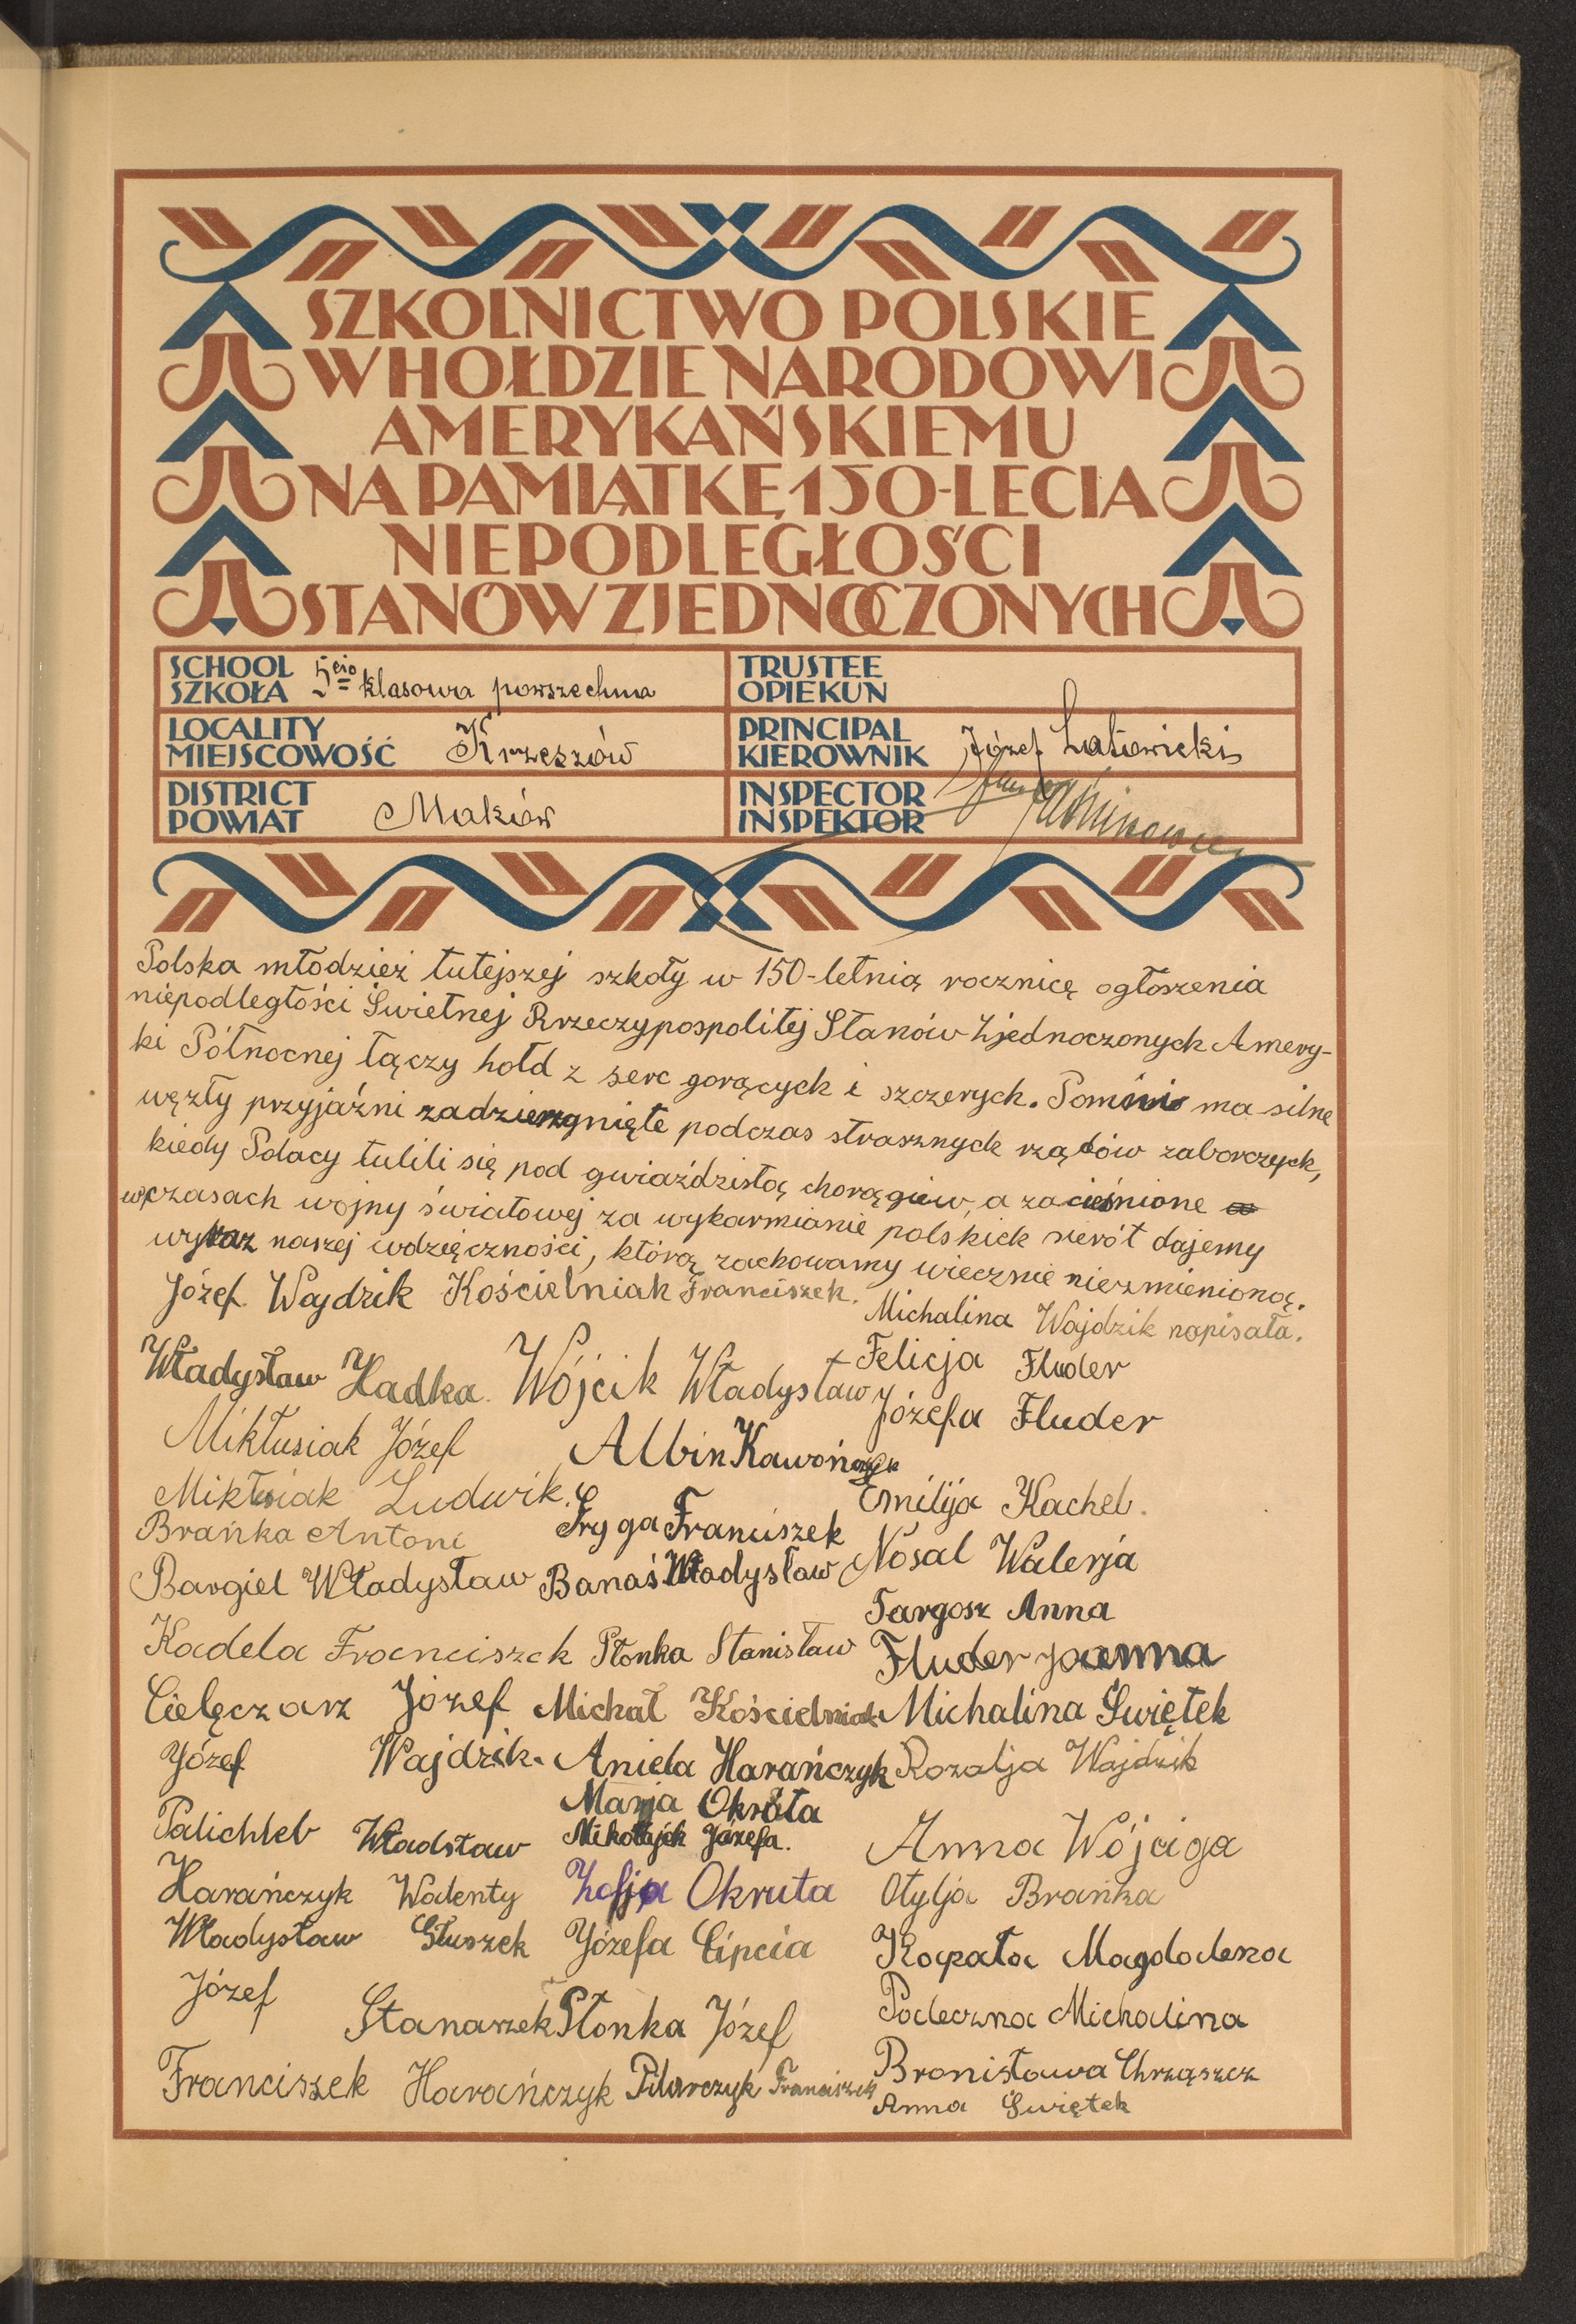 SZKOLNICTWO POLSKIE
W HOŁDZIE NARODOWI
AMERYKAŃSKIEMU
NA PAMIĄTKĘ 150-LECIA
NIEPODLEGŁOŚCI
STANÓW ZJEDNOCZONYCH
SCHOOL
SZKOŁA 5cio klasowa powszechna
TRUSTEE
OPIEKUN
LOCALITY
MIEJSCOWOŚĆ Krzeszów
PRINCIPAL
KIEROWNIK Józef
DISTRICT
POWIAT Maków
INSPECTOR
INSPEKTOR
Polska młodzież tutejszej szkoły w 150-letnią rocznicę ogłoszenia
niepodległości Świetnej Rrzeczypospolitej Stanów Zjednoczonych Amery-
ki Północnej łączy hołd z serc gorących i szczerych. Pomimo ma silne
węzły przyjaźni zadzierzgnięte podczas strasznych rządów zaborczych,
kiedy Polacy tulili się pod gwiaździstą chorągiew, a zacieśnione
w czasach wojny światowej za wykarmianie polskich sierót dajemy
wyraz naszej wdzięczności, którą zachowamy wiecznie niezmienioną.
Józef Wajdzik Kościelniak Franciszek.
Michalina Wajdzik napisała.
Władysław Hadka. Wójcik Władysław Felicja Fluder
Józefa Fluder
Mikłusiak Józef Albin Kawończyk
Mikłusiak Ludwik. Emilja Kachel.
Brańka Antoni Fryga Franciszek
Bargiel Władysław Banaś Władysław Nosal Walerja
Targosz Anna
Kadela Franciszek Płonka Stanisław Fluder Joanna
Cielęczarz Józef Michał Kościelniak Michalina Świętek
Józef Wajdzik. Aniela Harańczyk Rozalja Wajdzik
Marja Okruta
Palichleb Władsław Mikołajek Józefa. Anna Wójciga
Harańczyk Walenty Zofja Okruta Otylja Brańka
Władysław Głuszek Józefa Cipcia Kapała Magdalena
Józef Stanaszek Płonka Józef Paleczna Michalina
Franciszek Harańczyk Pilarczyk Franciszek Bronisława Chrząszcz
Anna Świętek